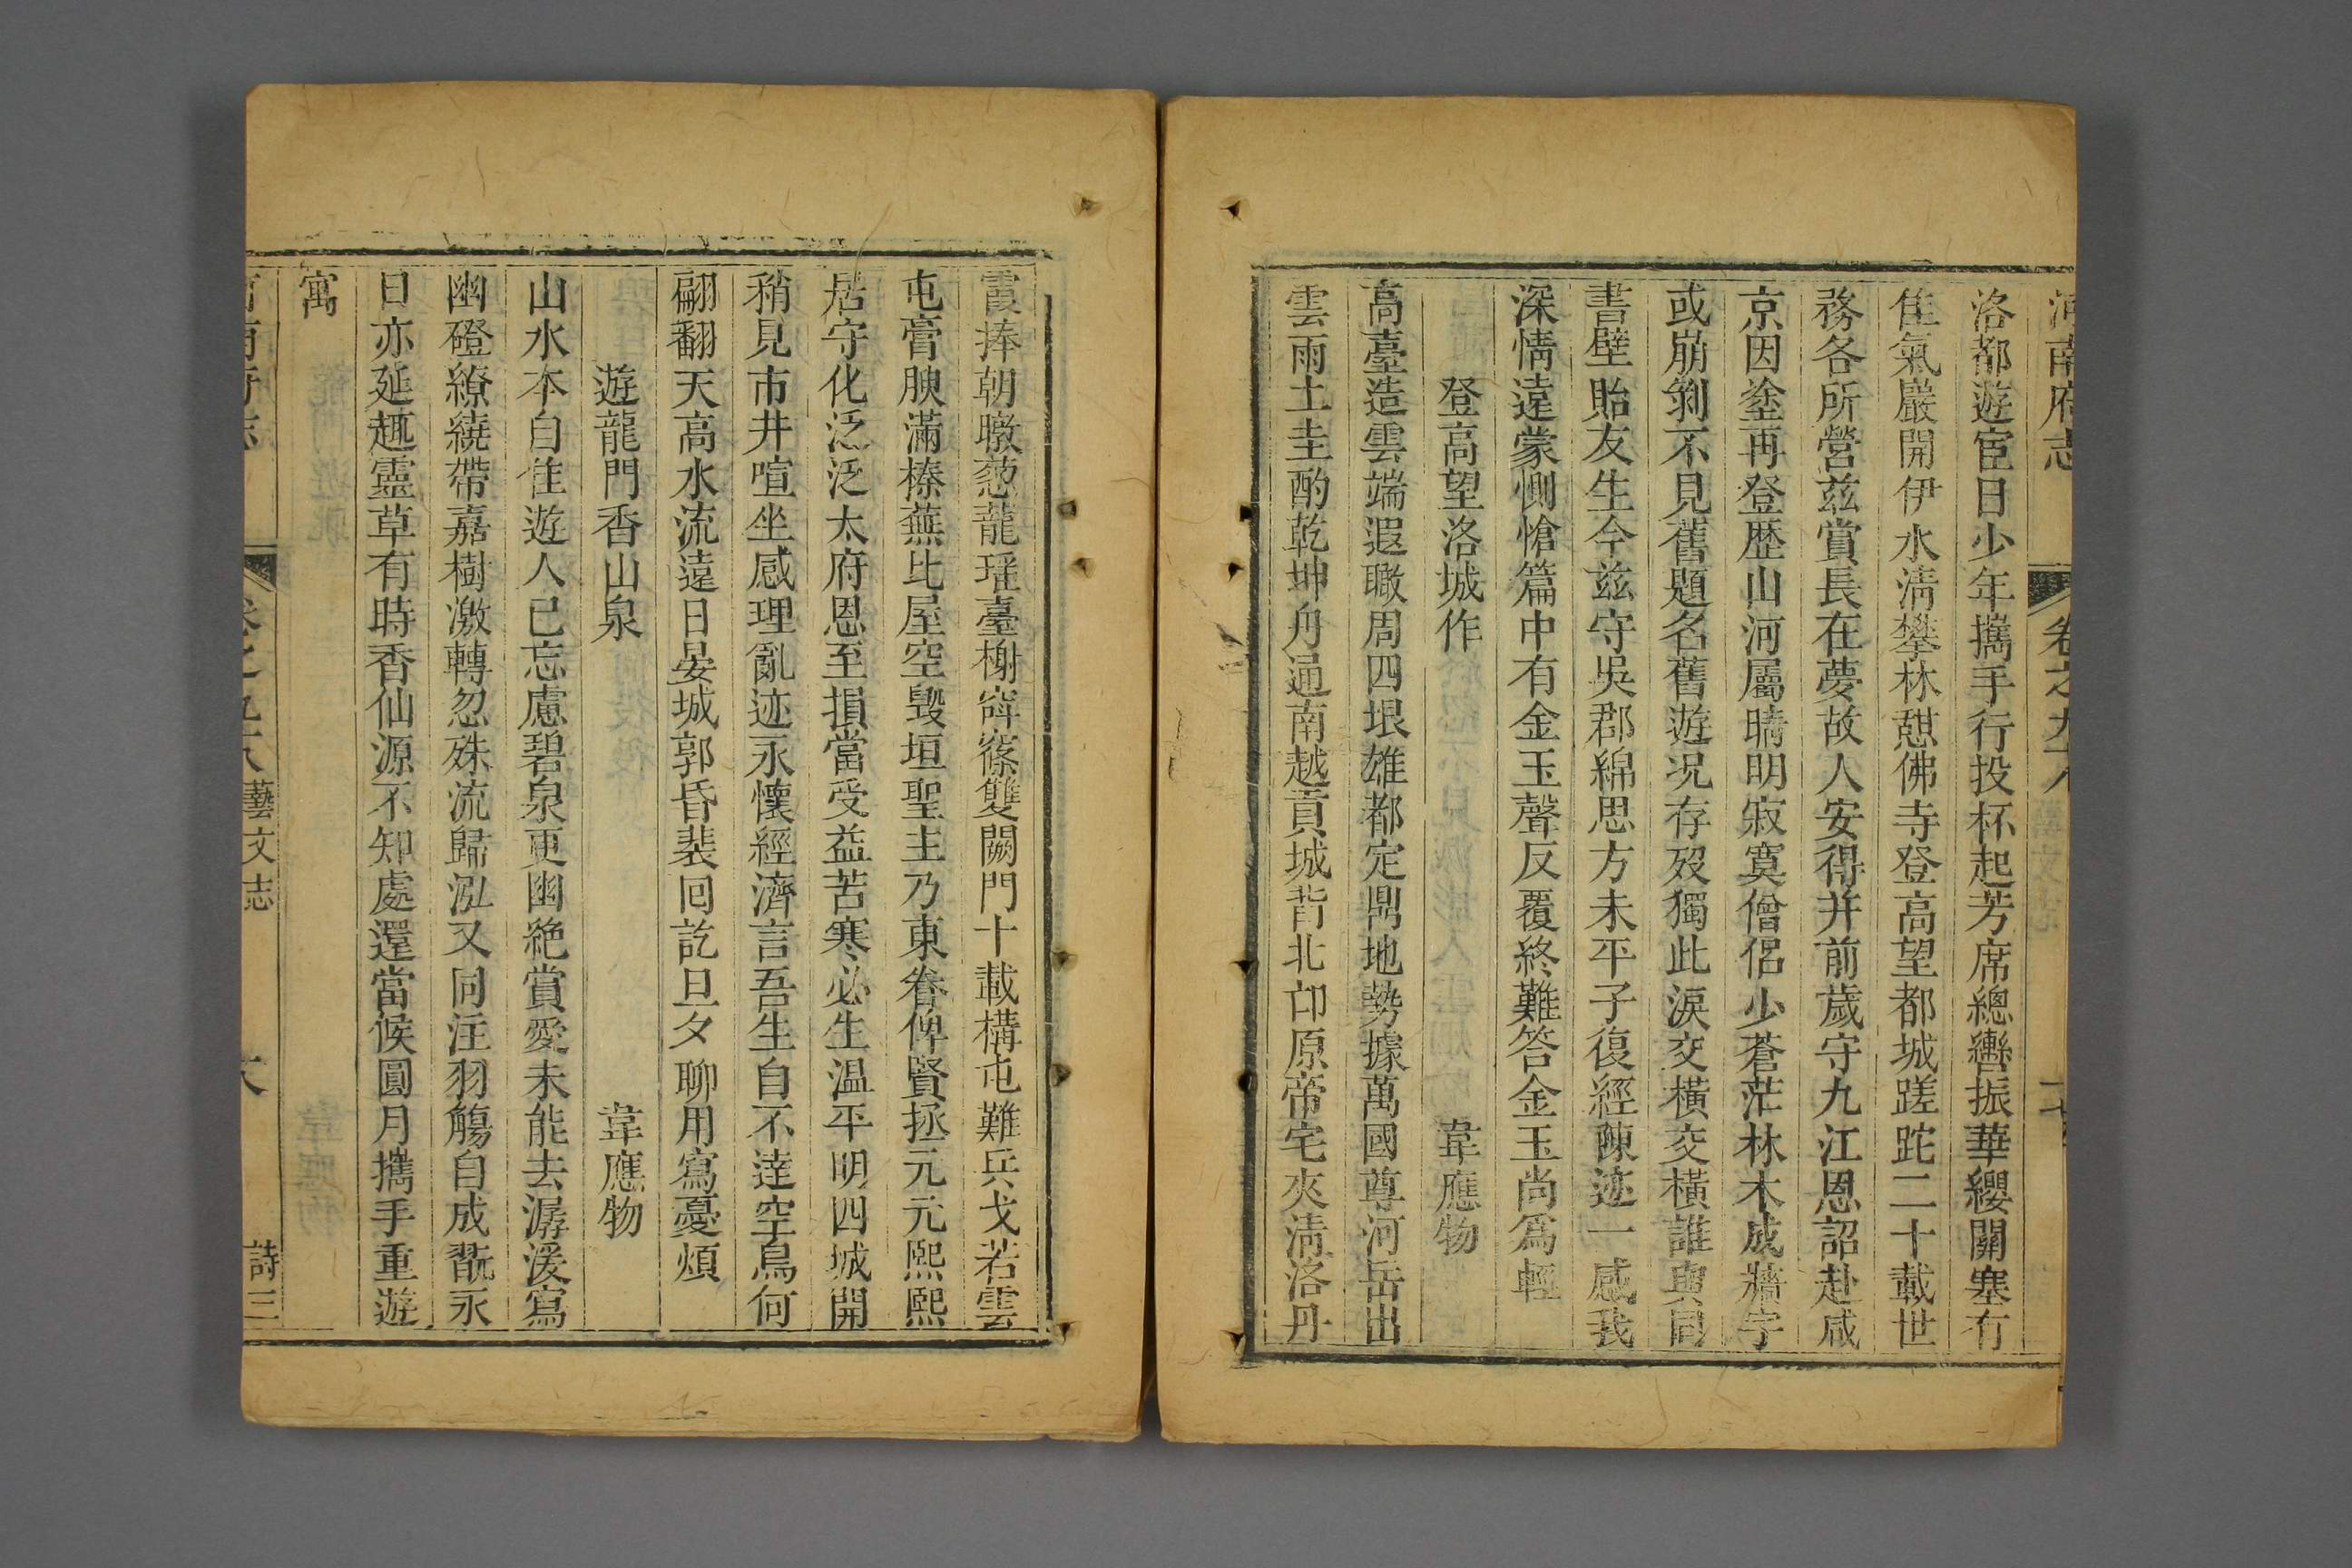 河南府志 卷之九十八
洛都遊宦日少年攜手行投杯起芳席總轡振華纓關塞有
佳氣巖開伊水淸攀林憇佛寺登高望都城蹉跎二十載世
務各所營兹賞長在夢故人安得并前歲守九江恩詔赴咸
京因塗再登歴山河屬晴明寂寞僧侶少蒼茫林木成牆宇
或崩剝不見舊題名舊遊况存歿獨此淚交橫交橫誰與同
書壁貽友生今兹守吳郡綿思方未平子復經陳迹一感我
深情遠蒙惻愴篇中有金玉聲反覆終難答金玉尚爲輕
登高望洛城作 韋應物
高臺造雲端遐瞰周四垠雄都定鼎地勢據萬國尊河岳出
雲雨土圭酌乾坤舟通南越貢城背北邙原帝宅夾淸洛丹
霞捧朝暾葱蘢瑤臺榭窱雙闕門十載構屯難兵戈若雲
屯膏腴滿榛蕪比屋空毁垣聖主乃東眷俾賢拯元元熙熙
居守化泛泛太府恩至損當受益苦寒必生温平明四城開
稍見市井喧坐感理亂迹永懷經濟言吾生自不達空鳥何
翩翻天高水流遠日晏城郭昏裴回訖旦夕聊用寫憂煩
遊龍門香山泉 韋應物
山水本自佳遊人已忘慮碧泉更幽絶賞愛未能去潺湲寫
幽磴繚繞帶嘉樹激轉忽殊流歸泓又同注羽觴自成翫永
日亦延趣靈草有時香仙源不知處還當候圓月攜手重遊
寓
藝文志 詩三